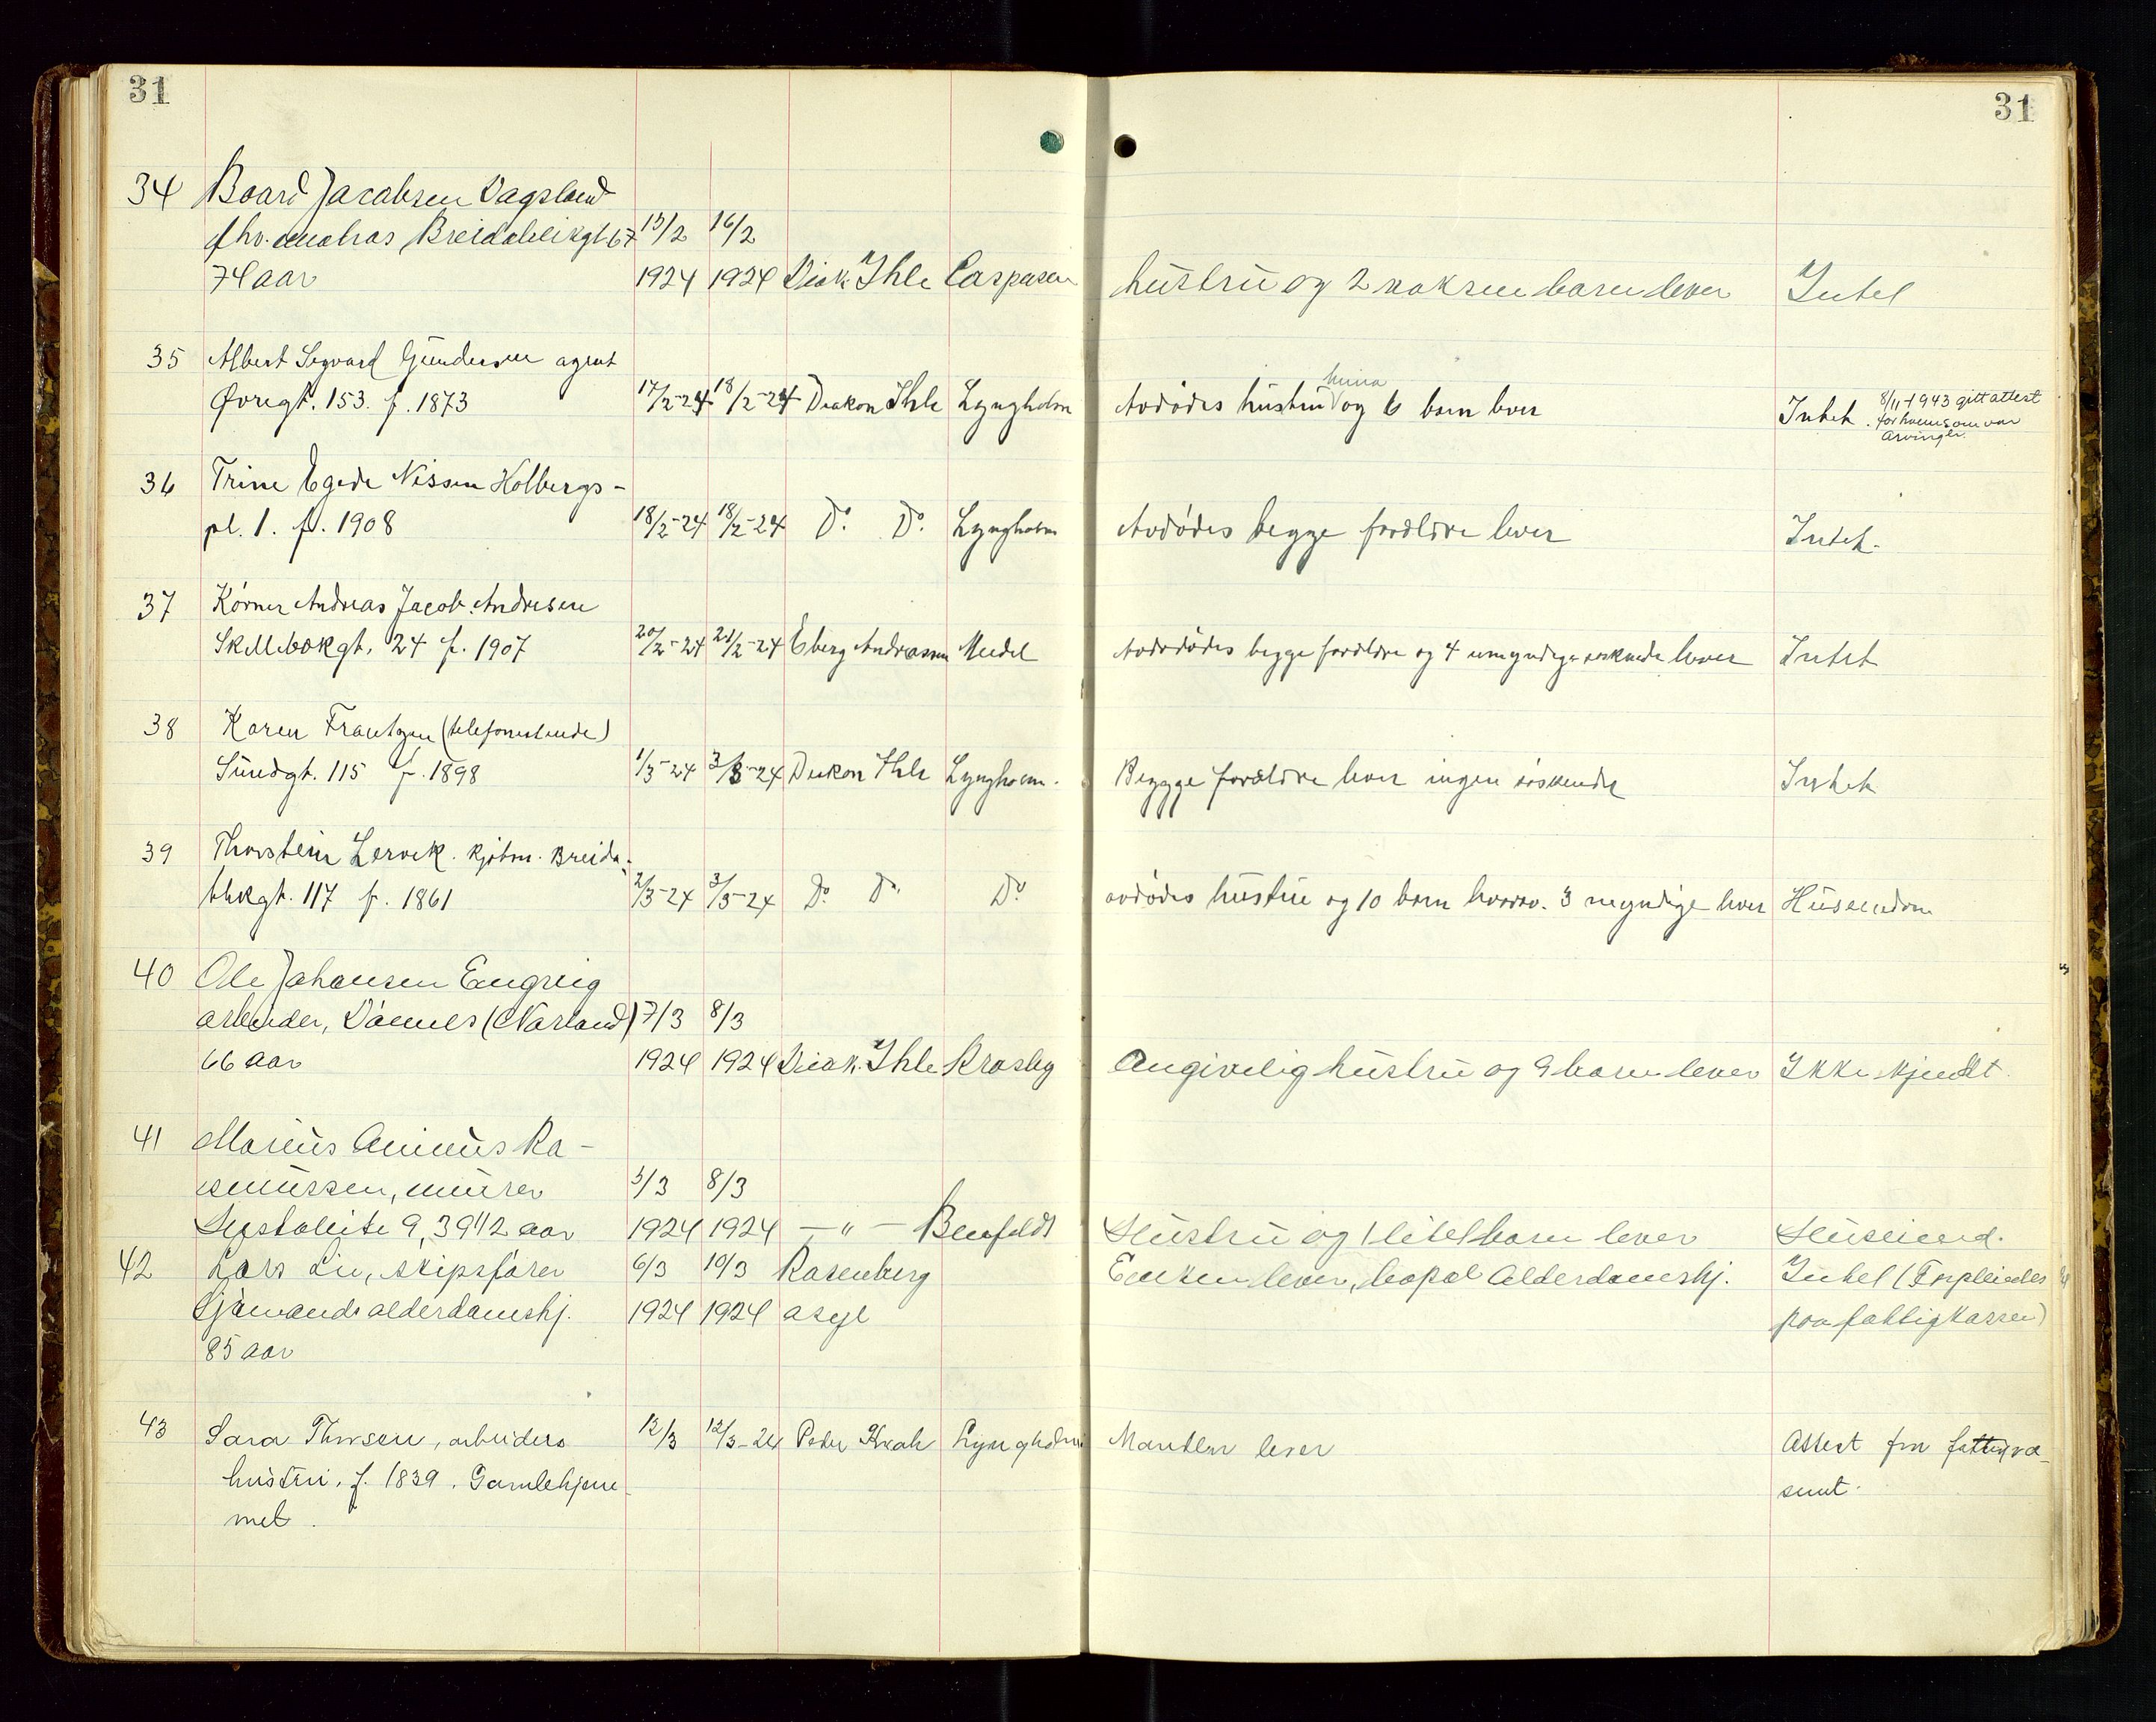 31
31
34 Baard Jacobsen Vagsland
fhv. matros Breidablikgt 67 15/2 16/2
74 aar 1924 1924 Diak. Ihle Caspersen hustru og 2 voksne barn lever Intet
35 Albert Sigvard Gundersen agent
Øvregt. 153. f. 1873 17/2-24 18/2-24 Diakon Ihle Lyngholm Avdødes hustru og 6 barn lever Intet. 8/11-1943 gitt attest
for hvem som var
arvinger.
36 Trine Egede Nissen Holbergs-
pl. 1. f. 1908 18/2-24 18/2-24 Do. Do. Lyngholm Avdødes begge forældre lever Intet.
37 Kørner Andreas Jacob Andresen
Skillebækgt. 24 f. 1907 20/2-24 21/2-24 Eberg Andreassen Meidel Avdødes begge forældre og 4 umyndige søskende lever Intet
38 Karen Frantzen (telefonistinde)
Sundgt. 115 f. 1898 1/3-24 3/3-24 Diakon Ihle Lyngholm. Begge forældre lever ingen søskende Intet
39 Thorstein Lervik. kjøbm. Breida-
blikgt. 117 f. 1861 2/3-24 3/3-24 Do. Do. Do. avdødes hustru og 10 barn hvorav. 3 umyndige lever Huseiendom
40 Ole Johansen Engvig
arbeider, Dønnes (Norland) 7/3 8/3
66 aar 1924 1924 Diak. Ihle Krosby Angivelig hustru og 9 barn lever Ikke kjendt.
41 Marius Animus Ra-
smussen, murer 3/3 8/3
9, 39 1/2 aar 1924 1924 —"— Benfeldt Hustru og 1 litet barn lever Huseiend.
42 Lars Lie, skipsfører 6/3 10/3 Rosenberg Enken lever, bopæl Alderdomshj. Intet (Forpleiedes
Sjømands alderdomshj. 1924 1924 asyl paa fattigkassen)
85 aar
43 Sara Thorsen, arbeiders 12/3 12/3-24 Peder Lyngholm Manden lever Attest fra fattigvæ-
hustru. f. 1839. Gamlehjem- senet.
met.